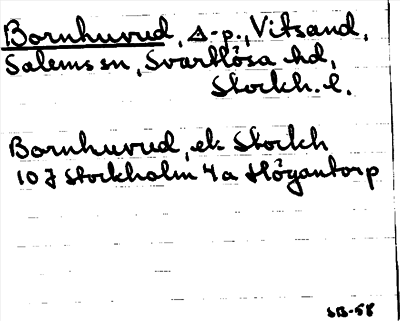 Bornhuvud, Δ-p., Vitsand,
Salems sn, Svartlösa hd,
Stockh. l.
Bornhuvud, ek Stockh
10 J Stockholm 4a Högantorp
SB-58